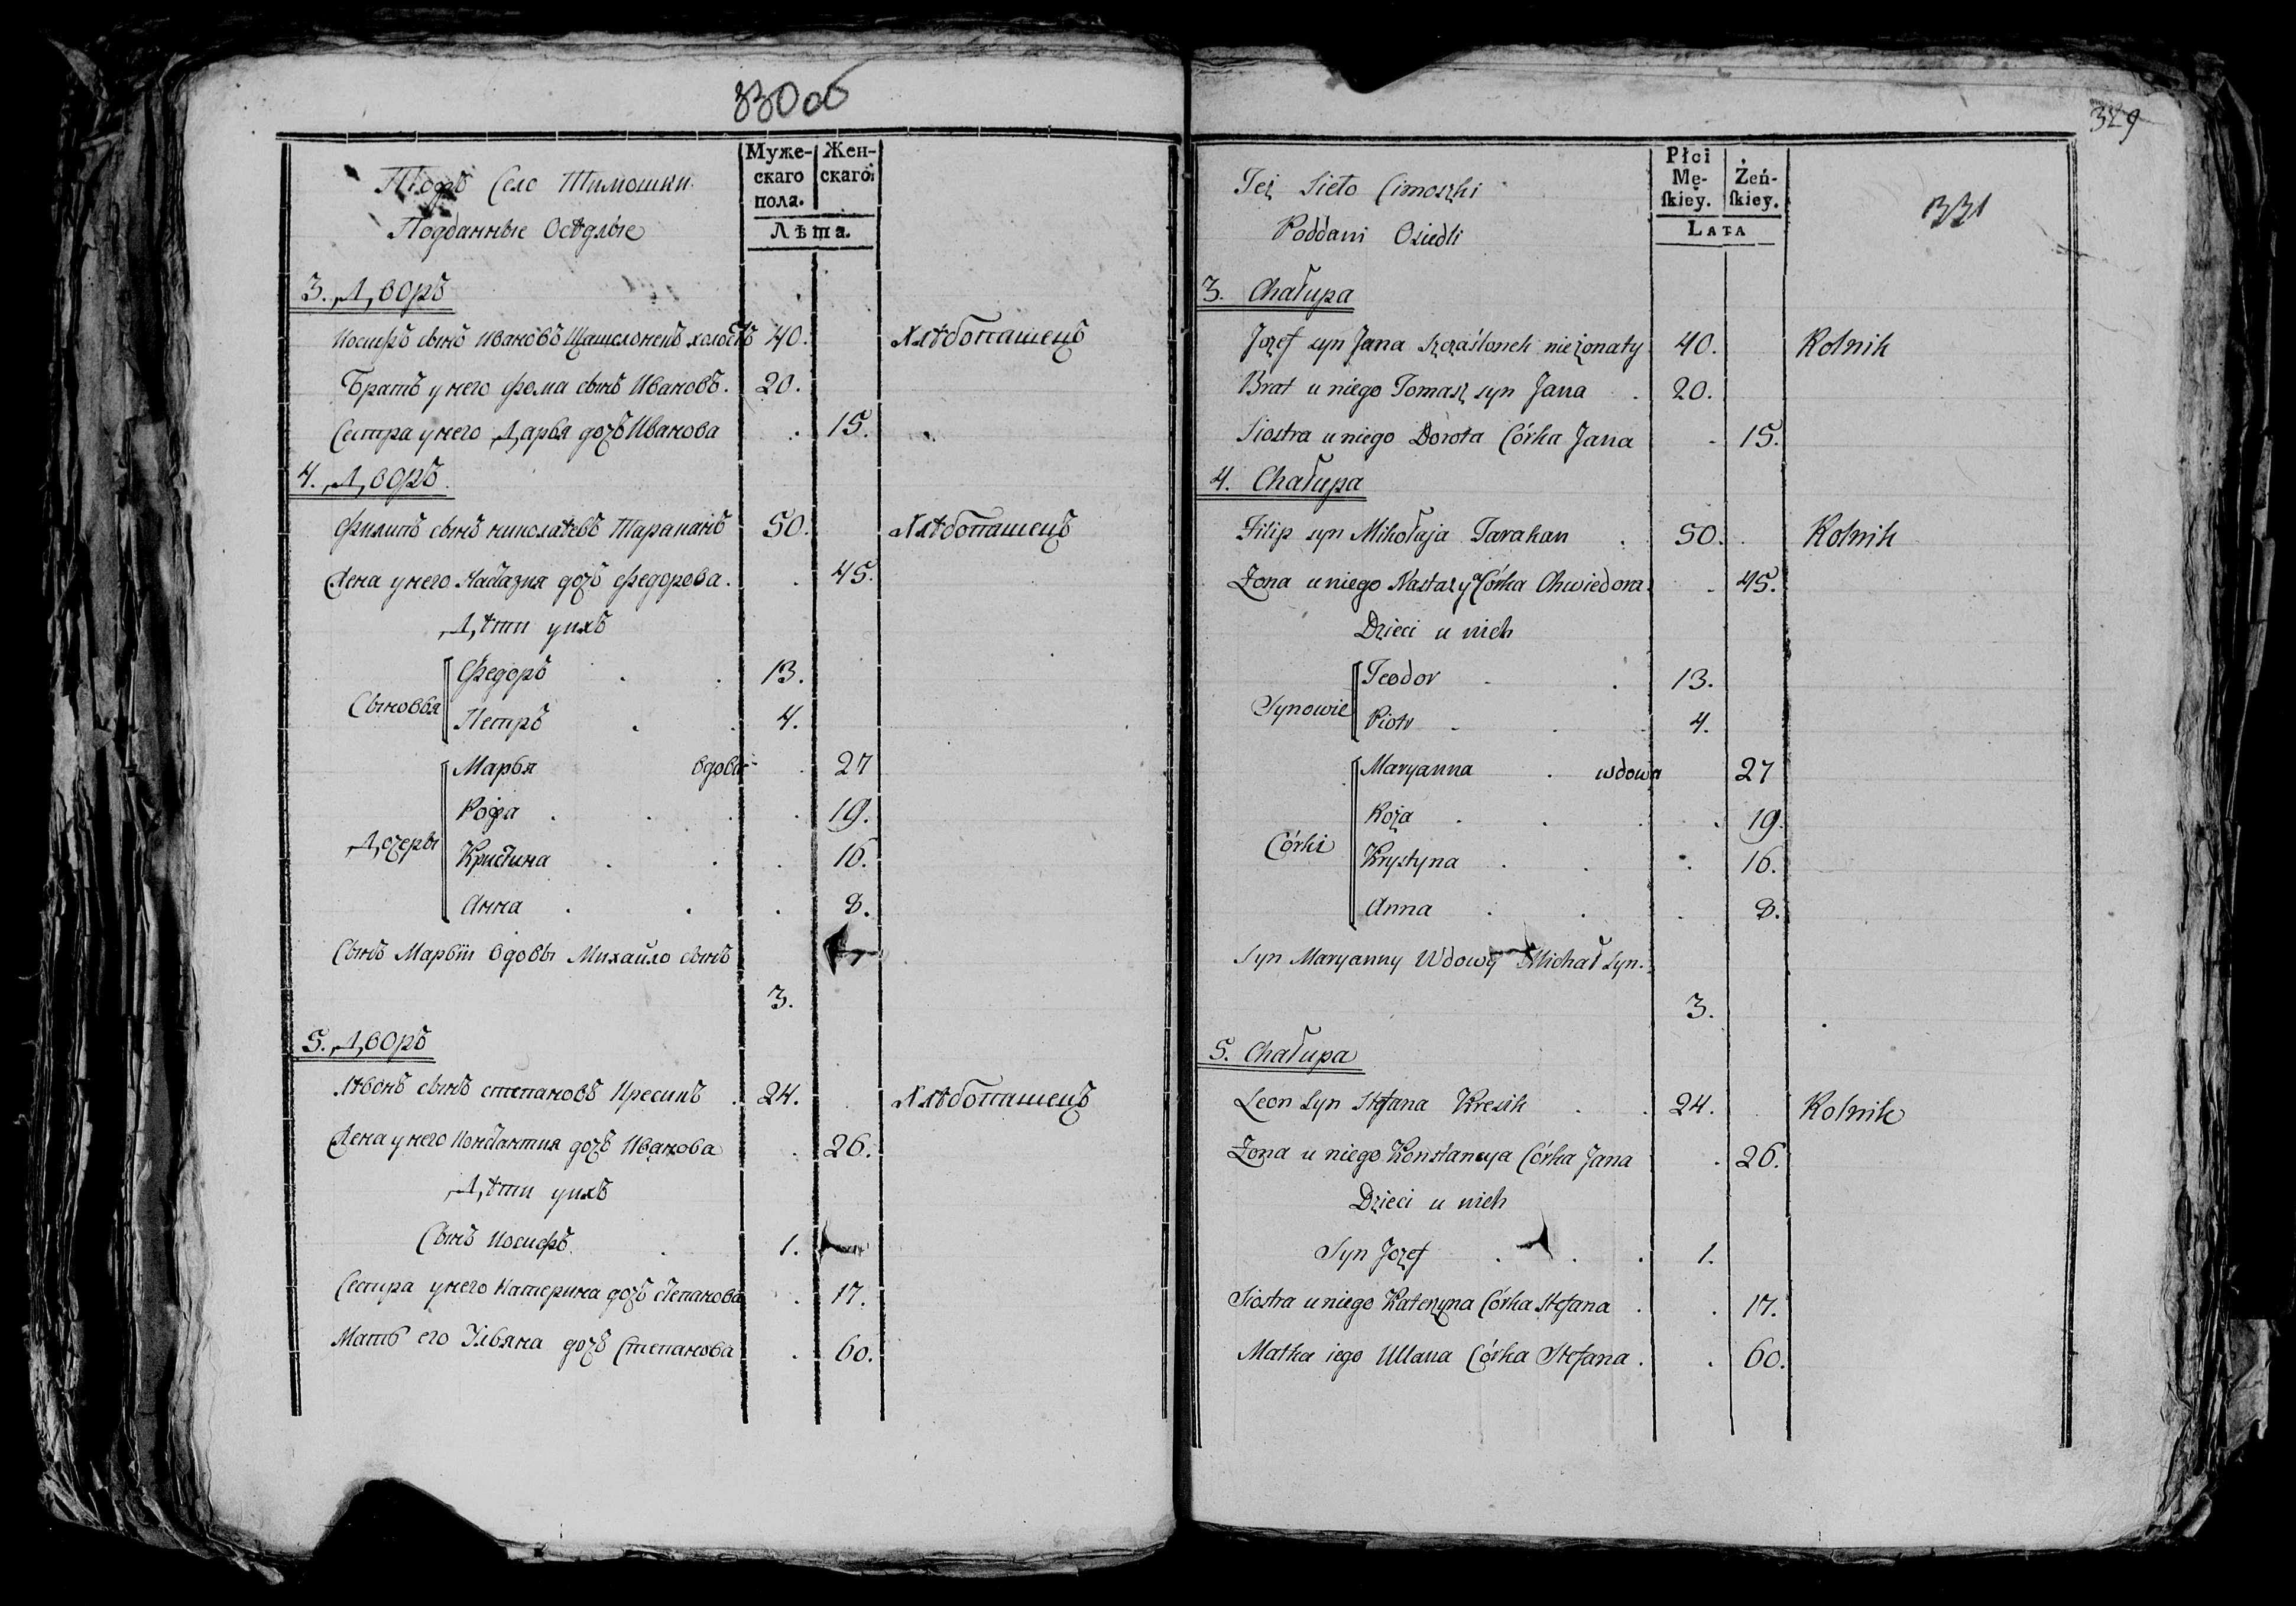 330об
Муже-скаго пола. Жен-скаго.
Лѣта.
Село Тимошки
Подданные Осѣдлые
3. Дворъ
Иосифъ сынъ Ивановъ холостъ 40. Хлѣбопашецъ
Братъ у него Фома сынъ Ивановъ. 20.
Сестра у него Дарья дочь Иванова 15.
4. Дворъ
Филипъ сынъ Николаевъ Тараканъ 50. Хлѣбопашецъ
Жена у него Настазия дочь Федорова. 45.
Дѣти у ихъ
Сыновья
Федоръ 13.
Петръ 4.
Дочеры
Марья вдова 27
Роза 19.
Кристина 16.
Анна 8.
Сынъ Марьи вдовы Михайло сынъ
3.
5. Дворъ
Лѣвонъ сынъ Степановъ Кресикъ 24. Хлѣбопашецъ
Жена у него Константия дочь Иванова 26.
Дѣти у ихъ
Сынъ Иосифъ 1.
Сестра у него Катерина дочь Степанова 17.
Мать его Ульяна дочь Степанова 60.
329
331
Płci Mę-ſkiey. Żeń-ſkiey.
LATA
Też Sieło Cimoszki
Poddani Osiedli
3. Chałupa
Jozef syn Jana Szcząślonek nieżonaty 40. Rolnik
Brat u niego Tomasz syn Jana 20.
Siostra u niego Dorota Córka Jana 15.
4. Chałupa
Filip syn Mikołaja Tarakan 50. Rolnik
Żona u niego Nastazya Córka Chwiedora 45.
Dzieci u nich
Synowie
Teodor 13.
Piotr 4.
Córki
Maryanna wdowa 27
Roza 19.
Krystyna 16.
Anna 8.
Syn Maryanny Wdowy Michał Syn.
3.
5. Chałupa
Leon Syn Stefana Kresik 24. Rolnik
Żona u niego Konstancya Córka Jana 26.
Dzieci u nich
Syn Jozef 1.
Siostra u niego Katerzyna Córka Stefana 17.
Matka iego Ullana Córka Stefana. 60.